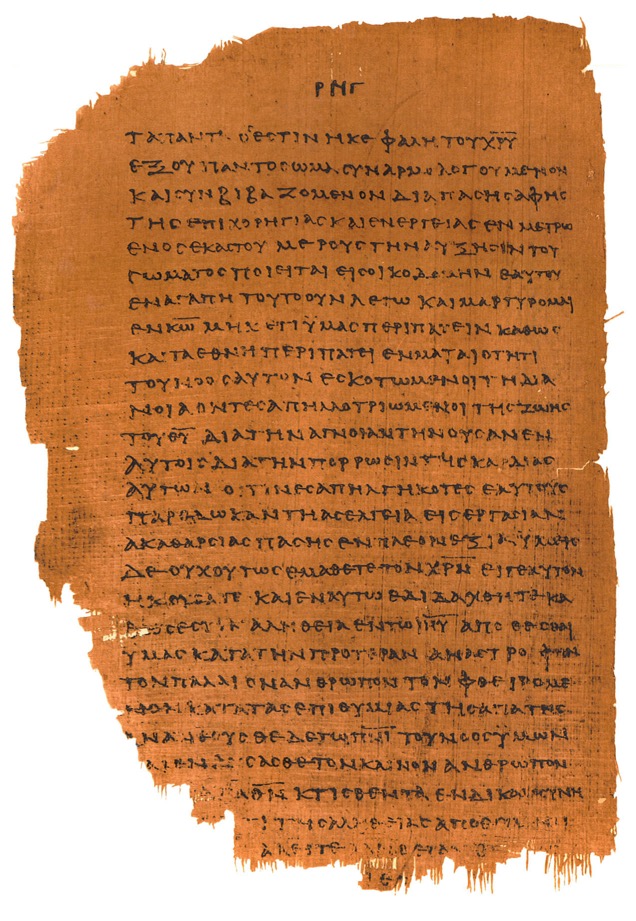 ΡΝΓ
ΤΑ ΠΑΝΤΑ ΟϹ ΕϹΤΙΝ Η ΚΕΦΑΛΗ ΤΟΥ Χ̅Ρ̅Υ̅
ΕΞ ΟΥ ΠΑΝ ΤΟ ϹΩΜΑ ϹΥΝΑΡΜΟΛΟΓΟΥΜΕΝΟΝ
ΚΑΙ ϹΥΝΒΙΒΑΖΟΜΕΝΟΝ ΔΙΑ ΠΑϹΗϹ ΑΦΗϹ
ΤΗϹ ΕΠΙΧΟΡΗΓΙΑϹ ΚΑΙ ΕΝΕΡΓΕΙΑϹ ΕΝ ΜΕΤΡΩ
ΕΝΟϹ ΕΚΑϹΤΟΥ ΜΕΡΟΥϹ ΤΗΝ ΑΥΞΗϹΙΝ ΤΟΥ
ϹΩΜΑΤΟϹ ΠΟΙΕΙΤΑΙ ΕΙϹ ΟΙΚΟΔΟΜΗΝ ΕΑΥΤΟΥ
ΕΝ ΑΓΑΠΗ ΤΟΥΤΟ ΟΥΝ ΛΕΓΩ ΚΑΙ ΜΑΡΤΥΡΟΜΑΙ
ΕΝ Κ̅Ω̅ ΜΗΚΕΤΙ ΫΜΑϹ ΠΕΡΙΠΑΤΕΙΝ ΚΑΘΩϹ
ΚΑΙ ΤΑ ΕΘΝΗ ΠΕΡΙΠΑΤΕΙ ΕΝ ΜΑΤΑΙΟΤΗΤΙ
ΤΟΥ ΝΟΟϹ ΑΥΤΩΝ ΕϹΚΟΤΩΜΕΝΟΙ ΤΗ ΔΙΑ
ΝΟΙΑ ΟΝΤΕϹ ΑΠΗΛΛΟΤΡΙΩΜΕΝΟΙ ΤΗϹ ΖΩΗϹ
ΤΟΥ Θ̅Υ̅ ΔΙΑ ΤΗΝ ΑΓΝΟΙΑΝ ΤΗΝ ΟΥϹΑΝ ΕΝ
ΑΥΤΟΙϹ ΔΙΑ ΤΗΝ ΠΩΡΡΩϹΙΝ ΤΗϹ ΚΑΡΔΙΑϹ
ΑΥΤΩΝ ΟΙΤΙΝΕϹ ΑΠΗΛΓΗΚΟΤΕϹ ΕΑΥΤΟΥϹ
ΠΑΡΕΔΩΚΑΝ ΤΗ ΑϹΕΛΓΕΙΑ ΕΙϹ ΕΡΓΑϹΙΑΝ
ΑΚΑΘΑΡϹΙΑϹ ΠΑϹΗϹ ΕΝ ΠΛΕΟΝΕΞΙΑ ΫΜΕΙϹ
ΔΕ ΟΥΧ ΟΥΤΩϹ ΕΜΑΘΕΤΕ ΤΟΝ Χ̅Ρ̅Ν̅ ΕΙΓΕ ΑΥΤΟΝ
ΗΚΟΥϹΑΤΕ ΚΑΙ ΕΝ ΑΥΤΩ ΕΔΙΔΑΧΘΗΤΕ ΚΑ
ΘΩϹ ΕϹΤΙΝ ΑΛΗΘΕΙΑ ΕΝ ΤΩ Ι̅Η̅Υ̅ ΑΠΟΘΕϹΘΑΙ
ΫΜΑϹ ΚΑΤΑ ΤΗΝ ΠΡΟΤΕΡΑΝ ΑΝΑϹΤΡΟΦΗΝ
ΤΟΝ ΠΑΛΑΙΟΝ ΑΝΘΡΩΠΟΝ ΤΟΝ ΦΘΕΙΡΟΜΕ
ΝΟΝ ΚΑΤΑ ΤΑϹ ΕΠΙΘΥΜΙΑϹ ΤΗϹ ΑΠΑΤΗϹ
ΑΝΑΝΕΟΥϹΘΕ ΔΕ ΤΩ Π̅Ν̅Ι̅ ΤΟΥ ΝΟΟϹ ΫΜΩΝ
ΚΑΙ ΕΝΔΥϹΑϹΘΕ ΤΟΝ ΚΑΙΝΟΝ ΑΝΘΡΩΠΟΝ
ΚΑΤΑ Θ̅Ν̅ ΚΤΙϹΘΕΝΤΑ ΕΝ ΔΙΚΑΙΟϹΥΝΗ
ΑΛΗΘΕΙΑϹ ΑΠΟΘΕΜΕΝΟΙ
ΛΑΛΕΙΤΕ